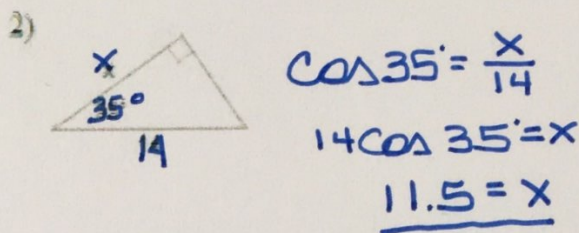 2)
x
35°
14
cos 35° = x/14
14 cos 35° = x
11.5 = x